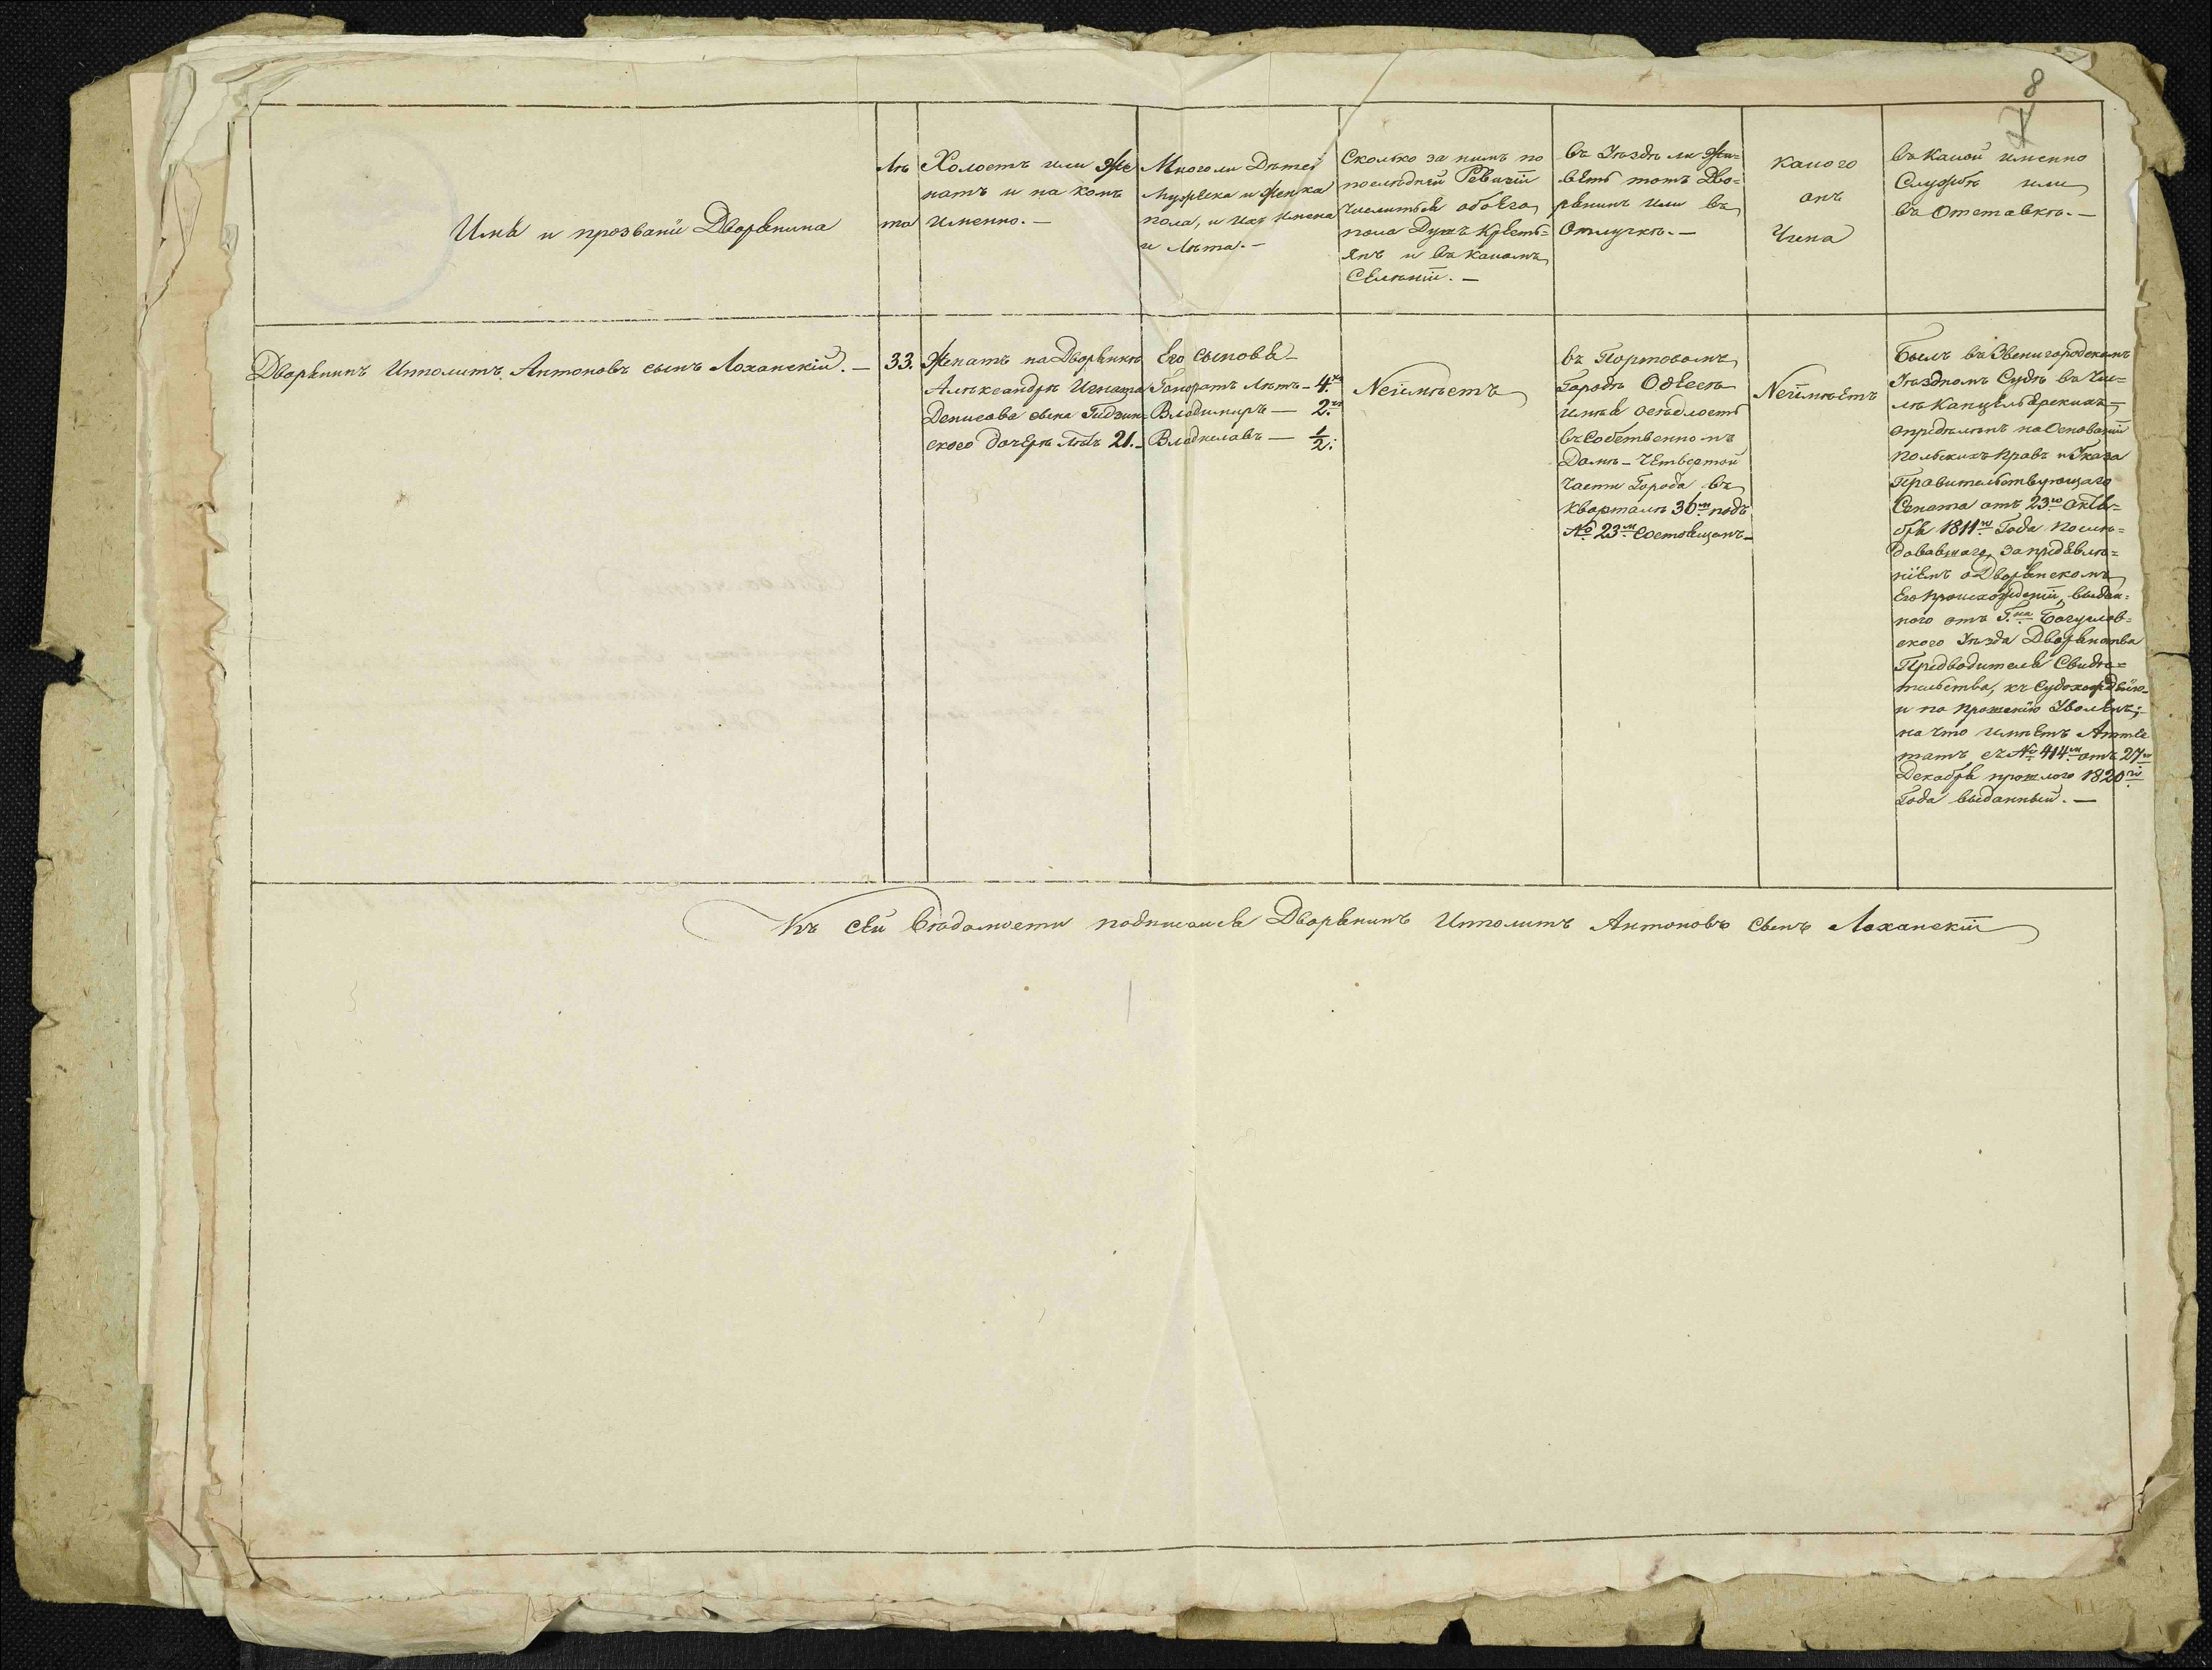 8
7
Имя и прозваніи Дворянина
Лѣ
та
Холостъ или Же
натъ и на комъ
именно. —
Много ли Дѣтей
Мужеска и Женска
пола, и ихъ имена
и лѣта. —
Сколько за нимъ по
послѣдней Ревизіи
числиться обоего
пола Душъ Кресть=
янъ и въ какомъ
Селѣніи. —
въ Уѣздѣ ли Жи=
вѣтъ тотъ Дво=
рянинъ или въ
Отлучкѣ. —
какого
онъ
Чина
въ какой именно
Службѣ или
въ Отставкѣ. —
Дворянинъ Ипполитъ Антоновъ сынъ Лоханскій. —
33.
Женатъ на Дворянкѣ
Алѣксандрѣ Игната
Денисова сына Гидзин=
ского дочерѣ лѣтъ 21. —
Его сыновья —
Гоноратъ лѣтъ — 4.хъ
Владимиръ — 2.хъ
Владиславъ — ½.
Неімѣетъ
въ Портовомъ
Городѣ Одессѣ
имѣя осѣдлость
въ Собственномъ
Домѣ — Четвертой
Части Города въ
Кварталѣ 36м подъ
№ 23м Состоящомъ —
Неімѣетъ
Былъ въ Звенигородскомъ
Уѣздномъ Судѣ въ Чи=
слѣ Канцелярскихъ —
опредѣленъ на Основаніи
Польскихъ Правъ и Указа
Правительствующаго
Сената отъ 23го Октя=
бря 1811го Года Послѣ=
довавшаго, за предявле=
ніемъ о Дворянскомъ
Его Происхожденіи, выдан=
ного отъ Г.на Богуслав=
ского Уѣзда Дворянства
Предводителя Свидѣ=
тельства, къ Судохожденію —
и по Прошенію Уволенъ; —
на что имѣетъ Аттес
татъ съ № 414м отъ 27го
Декабря прошлого 1820го
Года выданный. —
Къ сей Вѣдомости подписался Дворянинъ Ипполитъ Антоновъ Сынъ Лоханскій